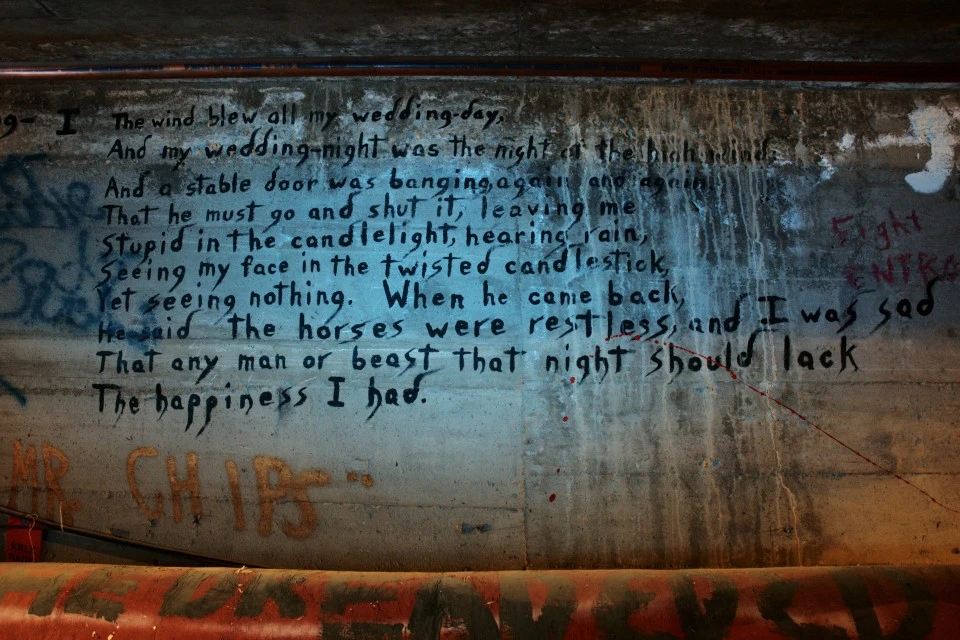 I The wind blew all my wedding-day,
And my wedding-night was the night of the high wind;
And a stable door was banging, again and again,
That he must go and shut it, leaving me
Stupid in the candlelight, hearing rain,
Seeing my face in the twisted candlestick,
Yet seeing nothing. When he came back,
He said the horses were restless, and I was sad
That any man or beast that night should lack
The happiness I had.
Fight
MR. CHIPS